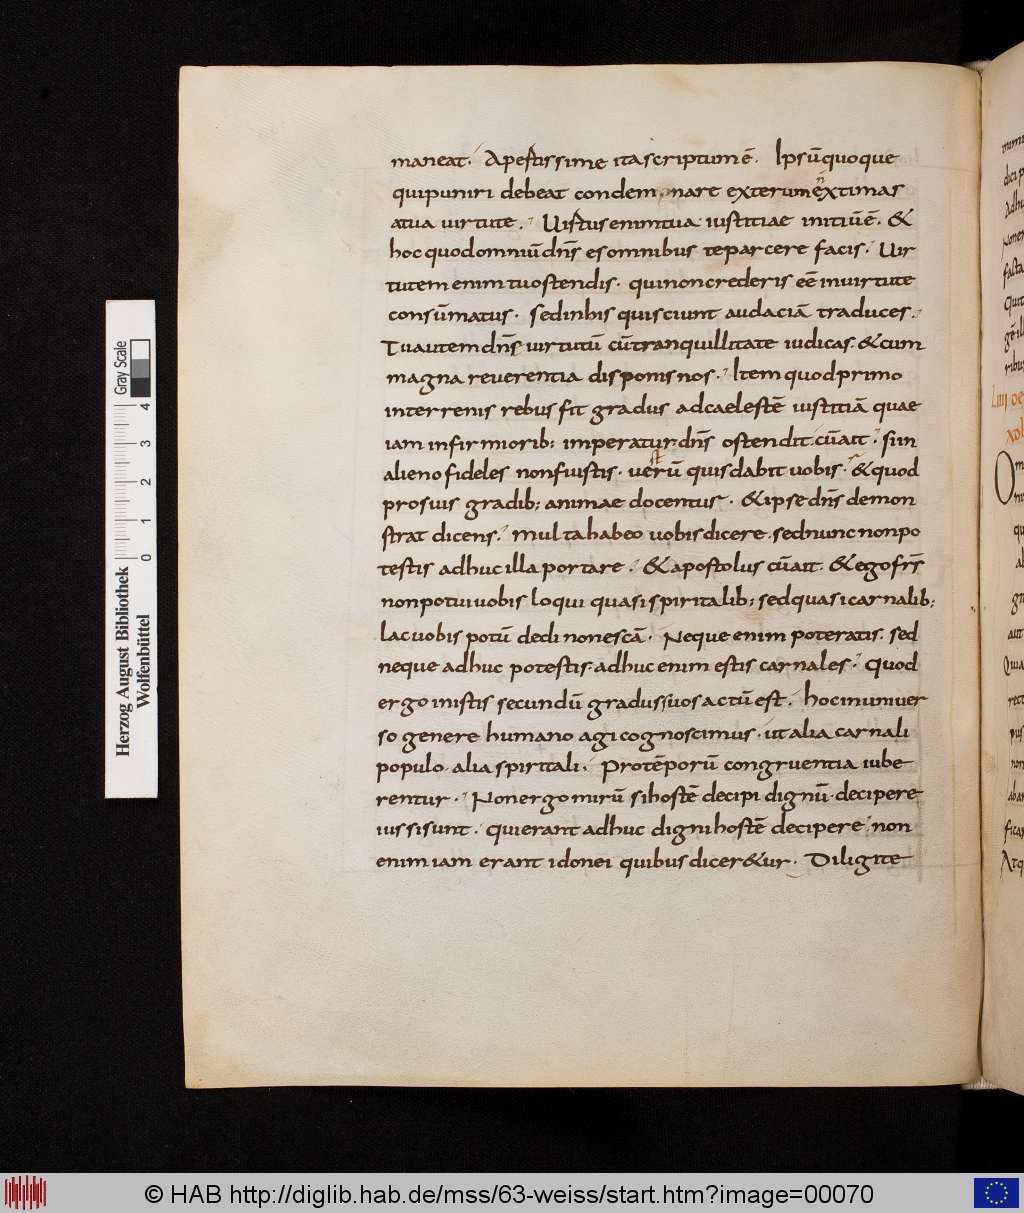 maneat. Apertissime ita scriptum ē. Ipsū quoque
qui puniri debeat condemnare exterum ñ extimas
a tua uirtute. Uirtus enim tua iustitiae initiū ē. &
hoc quod omniū dñs es omnibus te parcere facis. Uir
tutem enim tu ostendis. qui non crederis eē in uirtute
consūmatus. sed in his qui sciunt audaciā traduces.
Tu autem dñs uirtutū cū tranquillitate iudicas. & cum
magna reuerentia disponis nos. Item quod primo
in terrenis rebus fit gradus ad caelestē iustitiā quae
iam infirmiorib; imperatur. dñs ostendit cū ait. si in
alieno fideles non fuistis. uerū quis dabit uobis. & quod
pro suis gradib; animae docentur. & ipse dñs demon
strat dicens. multa habeo uobis dicere. sed nunc non po
testis adhuc illa portare. & apostolus cū ait. & ego frs̄
non potui uobis loqui quasi spiritalib; sed quasi carnalib;
lac uobis potū dedi non escā. Neque enim poteratis. sed
neque adhuc potestis. adhuc enim estis carnales. quod
ergo in istis secundū gradus suos actū est. hoc in uniuer
so genere humano agi cognoscimus. ut alia carnali
populo. alia spiritali. Pro tēporū congruentia iube
rentur. Non ergo mirū si hostē decipi dignū. decipere
iussi sunt. qui erant adhuc digni hostē decipere. non
enim iam erant idonei quibus dicer&ur. Diligite
Herzog August Bibliothek
Wolfenbüttel
Gray Scale
0 1 2 3 4
© HAB http://diglib.hab.de/mss/63-weiss/start.htm?image=00070